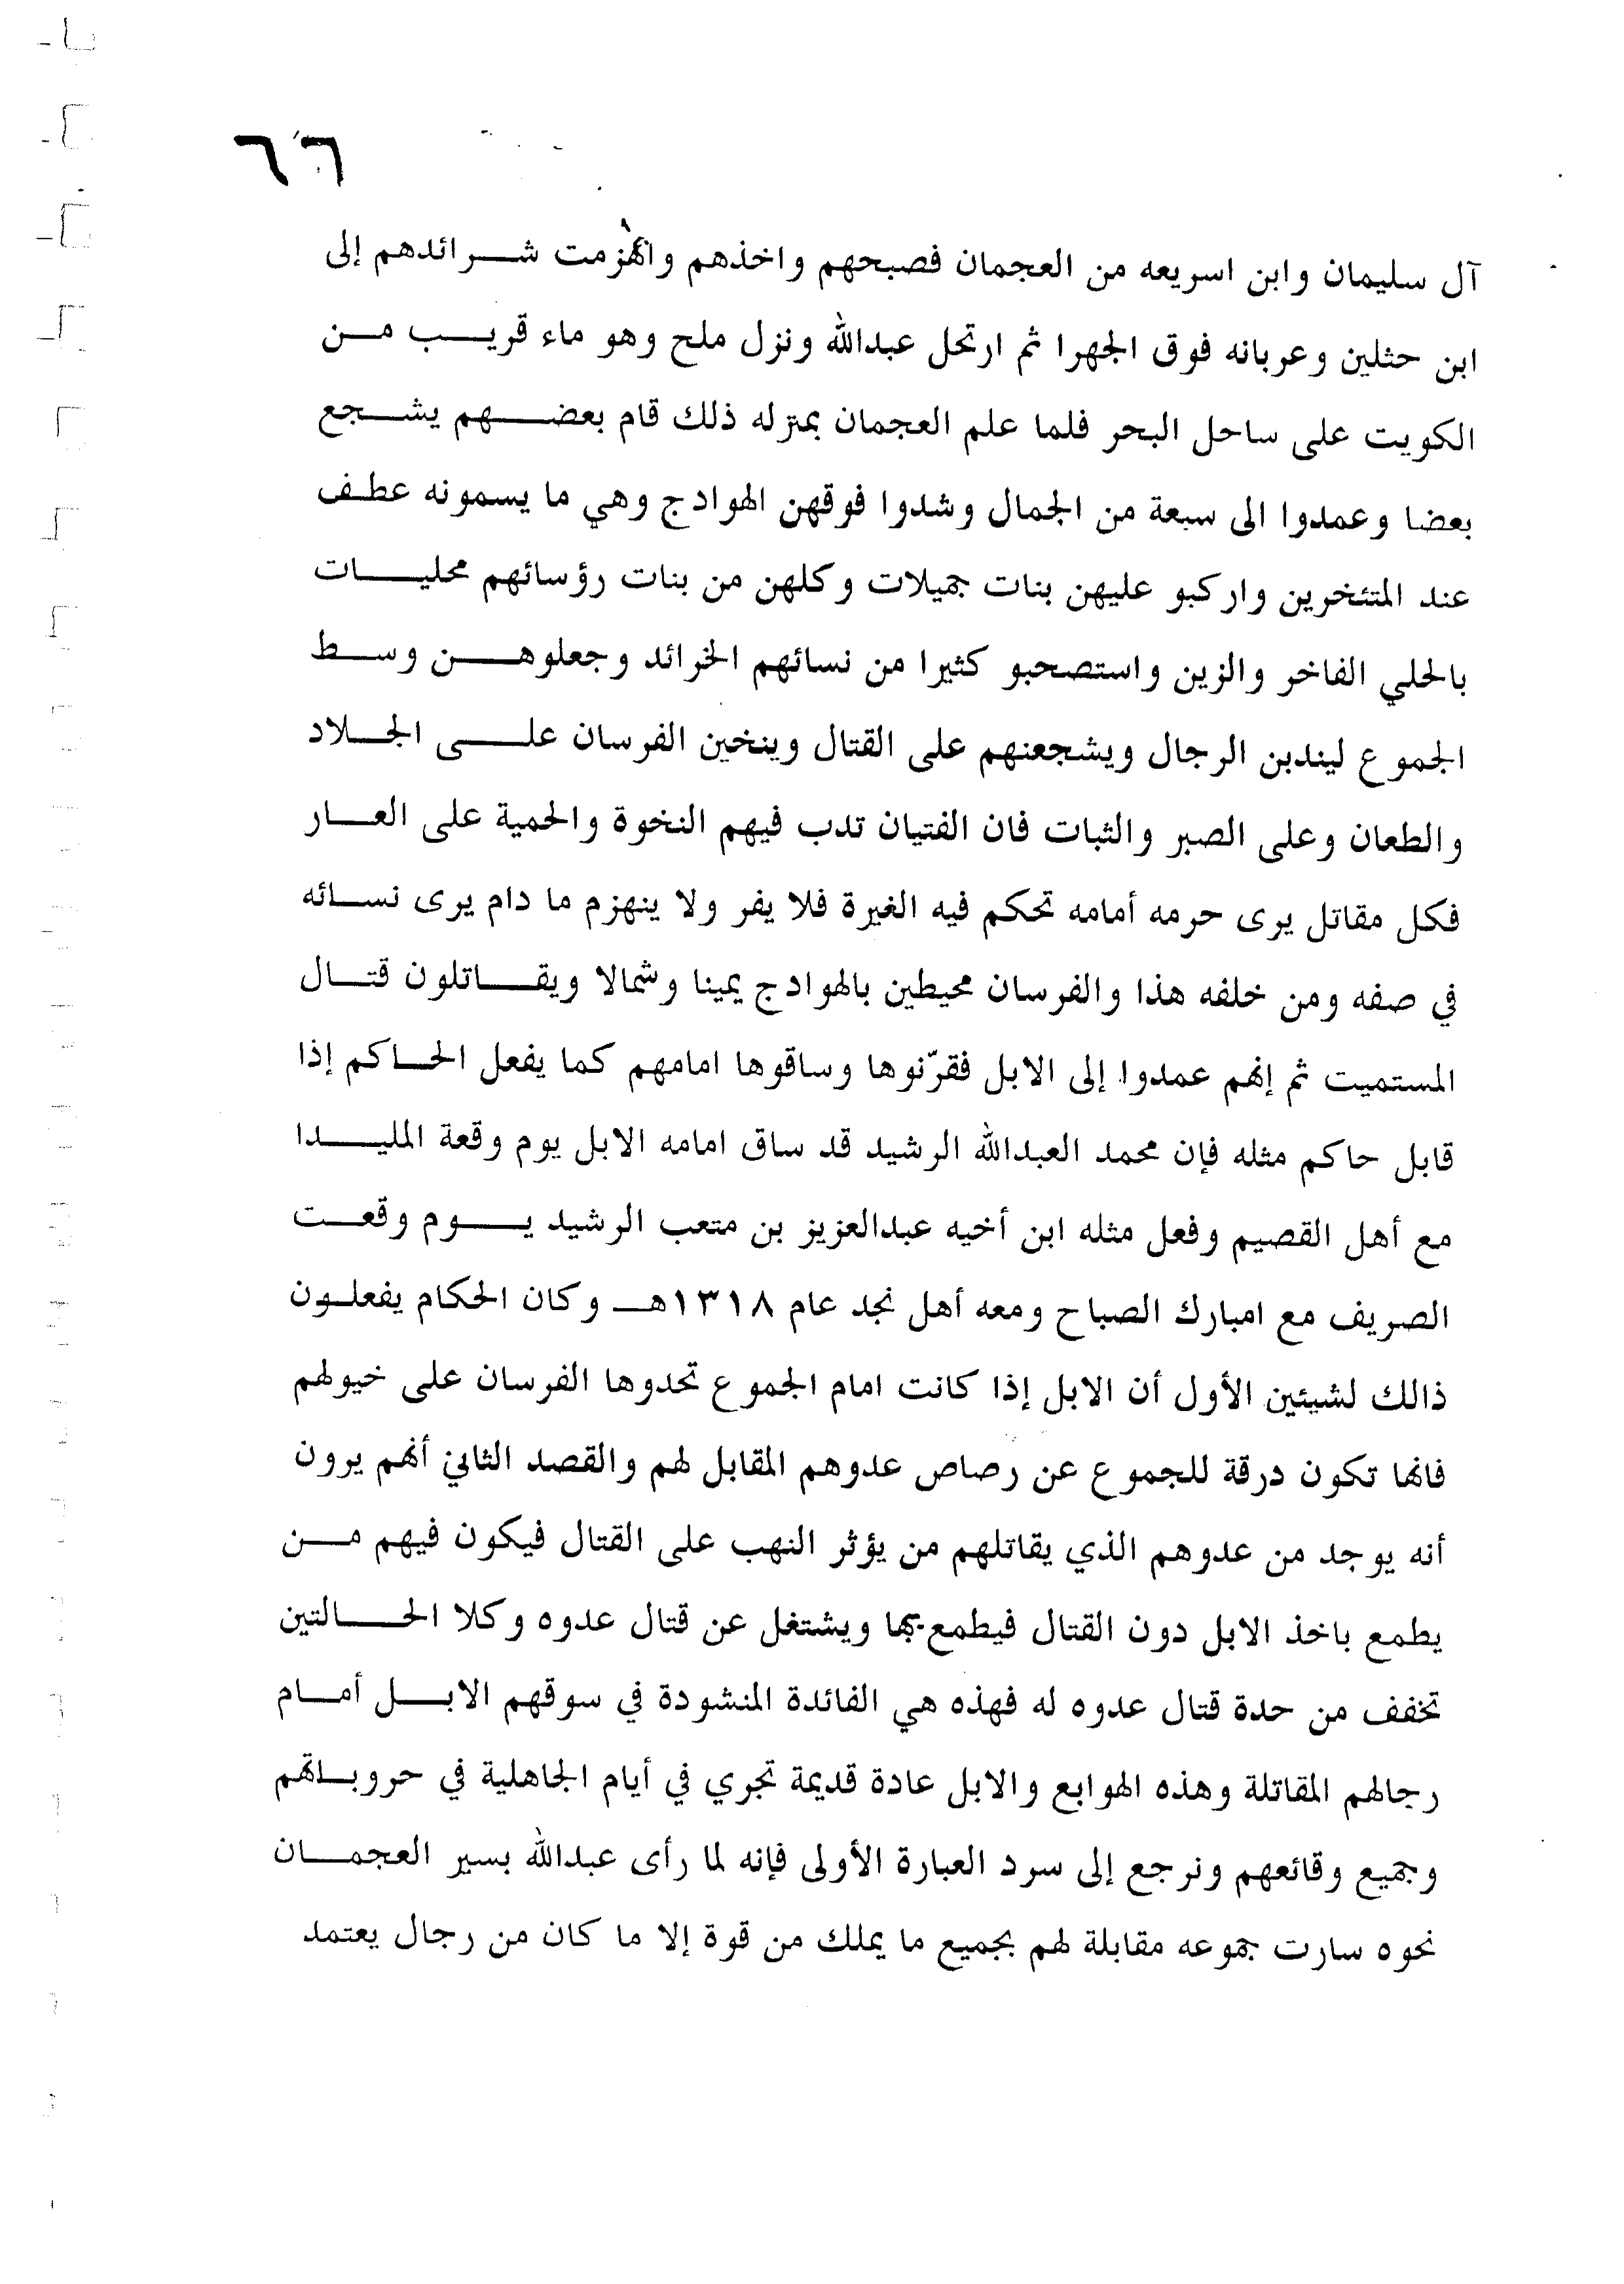 ٦٦
آل سليمان وابن اسريعه من العجمان فصبحهم واخذهم وانهزمت شرائدهم إلى
ابن حثلين وعربانه فوق الجهرا ثم ارتحل عبدالله ونزل ملح وهو ماء قريب من
الكويت على ساحل البحر فلما علم العجمان بمنزله ذلك قام بعضهم يشجع
بعضا وعمدوا الى سبعة من الجمال وشدوا فوقهن الهوادج وهي ما يسمونه عطف
عند المتئخرين واركبو عليهن بنات جميلات وكلهن من بنات رؤسائهم محليات
بالحلي الفاخر والزين واستصحبو كثيرا من نسائهم الخرائد وجعلوهن وسط
الجموع ليندبن الرجال ويشجعنهم على القتال وينخين الفرسان على الجلاد
والطعان وعلى الصبر والثبات فان الفتيان تدب فيهم النخوة والحمية على العار
فكل مقاتل يرى حرمه أمامه تحكم فيه الغيرة فلا يفر ولا ينهزم ما دام يرى نسائه
في صفه ومن خلفه هذا والفرسان محيطين بالهوادج يمينا وشمالا ويقاتلون قتال
المستميت ثم إنهم عمدوا إلى الابل فقرّنوها وساقوها امامهم كما يفعل الحاكم إذا
قابل حاكم مثله فإن محمد العبدالله الرشيد قد ساق امامه الابل يوم وقعة المليدا
مع أهل القصيم وفعل مثله ابن أخيه عبدالعزيز بن متعب الرشيد يوم وقعت
الصريف مع امبارك الصباح ومعه أهل نجد عام ١٣١٨هـ وكان الحكام يفعلون
ذالك لشيئين الأول أن الابل إذا كانت امام الجموع تحدوها الفرسان على خيولهم
فانها تكون درقة للجموع عن رصاص عدوهم المقابل لهم والقصد الثاني أنهم يرون
أنه يوجد من عدوهم الذي يقاتلهم من يؤثر النهب على القتال فيكون فيهم من
يطمع باخذ الابل دون القتال فيطمع بها ويشتغل عن قتال عدوه وكلا الحالتين
تخفف من حدة قتال عدوه له فهذه هي الفائدة المنشودة في سوقهم الابل أمام
رجالهم المقاتلة وهذه الهوابع والابل عادة قديمة تجري في أيام الجاهلية في حروباتهم
وجميع وقائعهم ونرجع إلى سرد العبارة الأولى فإنه لما رأى عبدالله بسير العجمان
نحوه سارت جموعه مقابلة لهم بجميع ما يملك من قوة إلا ما كان من رجال يعتمد